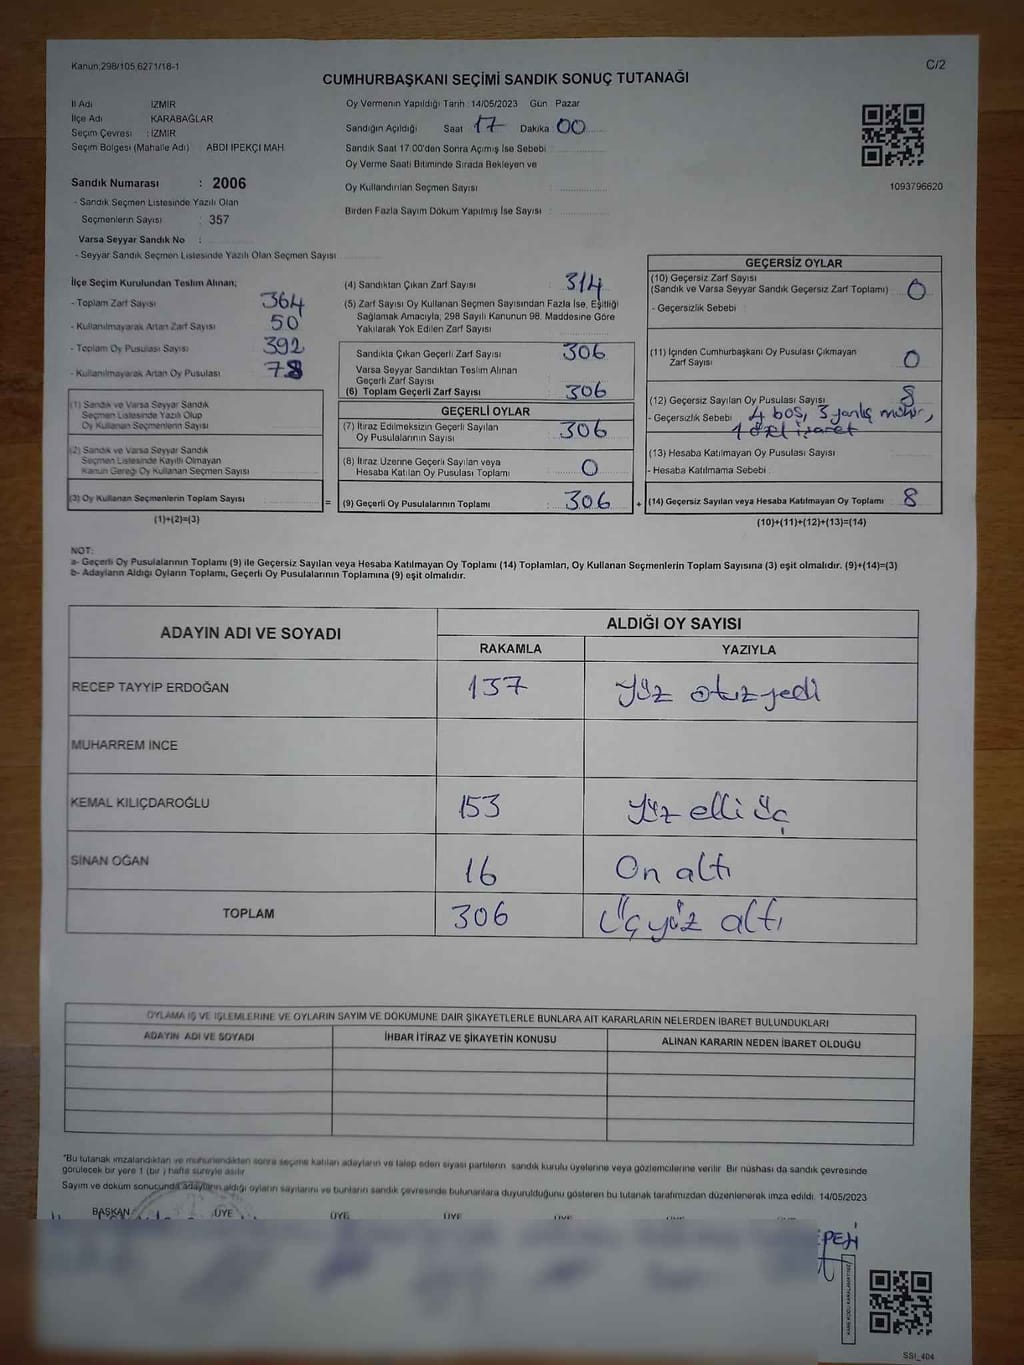 Kanun,298/105,6271/18-1
C/2
CUMHURBAŞKANI SEÇİMİ SANDIK SONUÇ TUTANAĞI
İl Adı İZMİR
İlçe Adı KARABAĞLAR
Seçim Çevresi : İZMİR
Seçim Bölgesi (Mahalle Adı) ABDİ İPEKÇİ MAH.
Sandık Numarası : 2006
- Sandık Seçmen Listesinde Yazılı Olan
Seçmenlerin Sayısı : 357
Varsa Seyyar Sandık No :
- Seyyar Sandık Seçmen Listesinde Yazılı Olan Seçmen Sayısı
Oy Vermenin Yapıldığı Tarih : 14/05/2023 Gün Pazar
Sandığın Açıldığı Saat 17 Dakika 00
Sandık Saat 17:00'den Sonra Açımış İse Sebebi
Oy Verme Saati Bitiminde Sırada Bekleyen ve
Oy Kullandırılan Seçmen Sayısı
Birden Fazla Sayım Döküm Yapılmış İse Sayısı
1093796620
İlçe Seçim Kurulundan Teslim Alınan;
- Toplam Zarf Sayısı 364
- Kullanılmayarak Artan Zarf Sayısı 50
- Toplam Oy Pusulası Sayısı 392
- Kullanılmayarak Artan Oy Pusulası 78
(1) Sandık ve Varsa Seyyar Sandık
Seçmen Listesinde Yazılı Olup
Oy Kullanan Seçmenlerin Sayısı
(2) Sandık ve Varsa Seyyar Sandık
Seçmen Listesinde Kayıtlı Olmayan
Kanun Gereği Oy Kullanan Seçmen Sayısı
(3) Oy Kullanan Seçmenlerin Toplam Sayısı =
(1)+(2)=(3)
(4) Sandıktan Çıkan Zarf Sayısı : 314
(5) Zarf Sayısı Oy Kullanan Seçmen Sayısından Fazla İse, Eşitliği
Sağlamak Amacıyla; 298 Sayılı Kanunun 98. Maddesine Göre
Yakılarak Yok Edilen Zarf Sayısı
Sandıkta Çıkan Geçerli Zarf Sayısı 306
Varsa Seyyar Sandıktan Teslim Alınan
Geçerli Zarf Sayısı
(6) Toplam Geçerli Zarf Sayısı : 306
GEÇERLİ OYLAR
(7) İtiraz Edilmeksizin Geçerli Sayılan
Oy Pusulalarının Sayısı : 306
(8) İtiraz Üzerine Geçerli Sayılan veya
Hesaba Katılan Oy Pusulası Toplamı : 0
(9) Geçerli Oy Pusulalarının Toplamı : 306 +
GEÇERSİZ OYLAR
(10) Geçersiz Zarf Sayısı
(Sandık ve Varsa Seyyar Sandık Geçersiz Zarf Toplamı) : 0
- Geçersizlik Sebebi :
(11) İçinden Cumhurbaşkanı Oy Pusulası Çıkmayan
Zarf Sayısı 0
(12) Geçersiz Sayılan Oy Pusulası Sayısı 8
- Geçersizlik Sebebi : 4 boş, 3 yanlış mühür,
1 özel işaret
(13) Hesaba Katılmayan Oy Pusulası Sayısı
- Hesaba Katılmama Sebebi :
(14) Geçersiz Sayılan veya Hesaba Katılmayan Oy Toplamı : 8
(10)+(11)+(12)+(13)=(14)
NOT:
a- Geçerli Oy Pusulalarının Toplamı (9) ile Geçersiz Sayılan veya Hesaba Katılmayan Oy Toplamı (14) Toplamları, Oy Kullanan Seçmenlerin Toplam Sayısına (3) eşit olmalıdır. (9)+(14)=(3)
b- Adayların Aldığı Oyların Toplamı, Geçerli Oy Pusulalarının Toplamına (9) eşit olmalıdır.
ADAYIN ADI VE SOYADI
ALDIĞI OY SAYISI
RAKAMLA YAZIYLA
RECEP TAYYİP ERDOĞAN 137 Yüz otuz yedi
MUHARREM İNCE
KEMAL KILIÇDAROĞLU 153 Yüz elli üç
SİNAN OĞAN 16 On altı
TOPLAM 306 Üç yüz altı
OYLAMA İŞ VE İŞLEMLERİNE VE OYLARIN SAYIM VE DÖKÜMÜNE DAİR ŞİKAYETLERLE BUNLARA AİT KARARLARIN NELERDEN İBARET BULUNDUKLARI
ADAYIN ADI VE SOYADI İHBAR İTİRAZ VE ŞİKAYETİN KONUSU ALINAN KARARIN NEDEN İBARET OLDUĞU
*Bu tutanak imzalandıktan ve mühürlendikten sonra seçime katılan adayların ve talep eden siyasi partilerin sandık kurulu üyelerine veya gözlemcilerine verilir. Bir nüshası da sandık çevresinde
görülecek bir yere 1 (bir) hafta süreyle asılır.
Sayım ve döküm sonucunda adayların aldığı oyların sayılarını ve bunların sandık çevresinde bulunanlara duyurulduğunu gösteren bu tutanak tarafımızdan düzenlenerek imza edildi. 14/05/2023
BAŞKAN ÜYE ÜYE ÜYE ÜYE ÜYE ÜYE
SSI_404